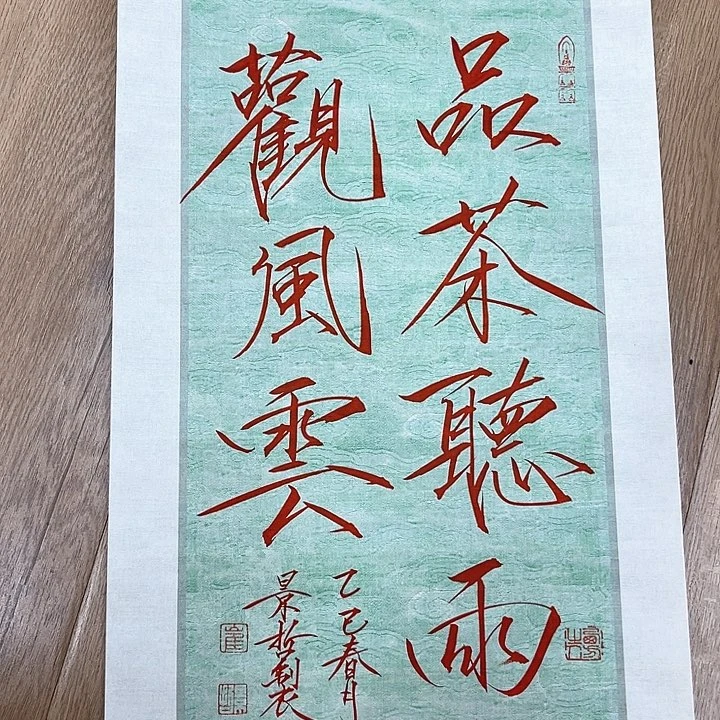 品茶聽雨
觀風雲
乙巳春月
景哲製